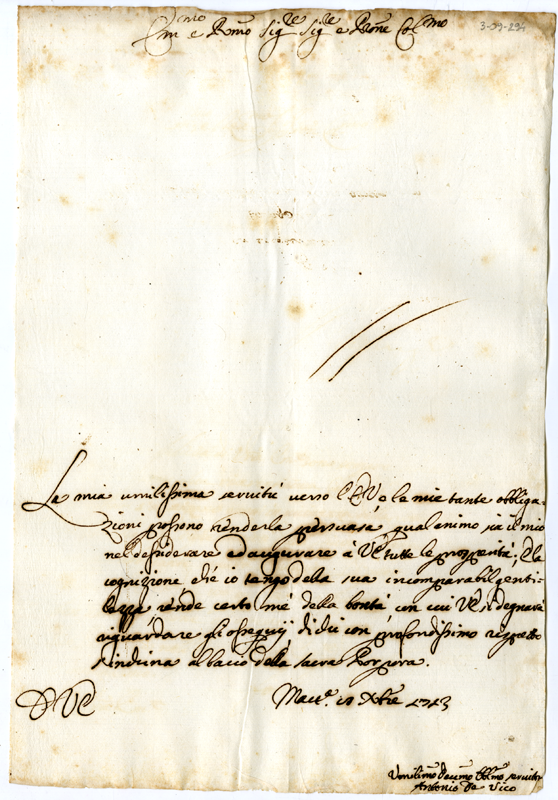 Em.mo e R.mo Sig.re Sig.re e Prone Col.mo
La mia umilissima servitù verso l'E.V, o le mie tante obbliga-
zioni possono renderla persuasa, qual animo sia il mio
nel desiderare ed augurare à VE tutte le prosperità; e la
cognizione che io tengo della sua incomparabil genti-
lezza rende certo mé della bontà con cui VE si degnarà
riguardare gl'ossequij di chi con profondissimo rispetto
s'inchina al bacio della sacra Porpora.
D VE
Mac.ta Xbre 1713
Umilimo Devmo Obblmo servitor
Antonio De Vico